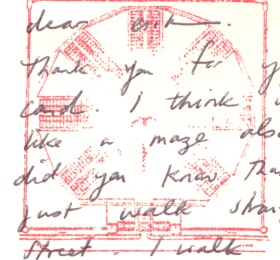 dear
Thank you for
card. I think
like a maze
did you know
just walk
street. I walk